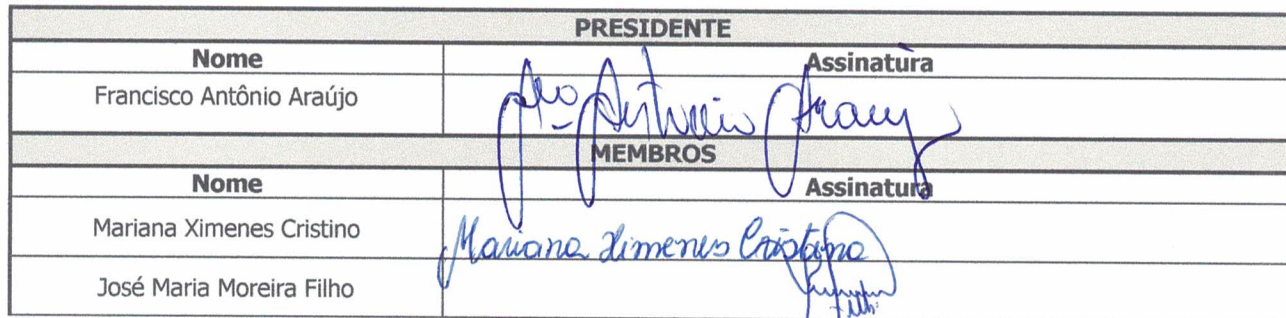 PRESIDENTE
Nome Assinatura
Francisco Antônio Araújo Fco Antonio Arauj
MEMBROS
Nome Assinatura
Mariana Ximenes Cristino Mariana Ximenes Cristino
José Maria Moreira Filho